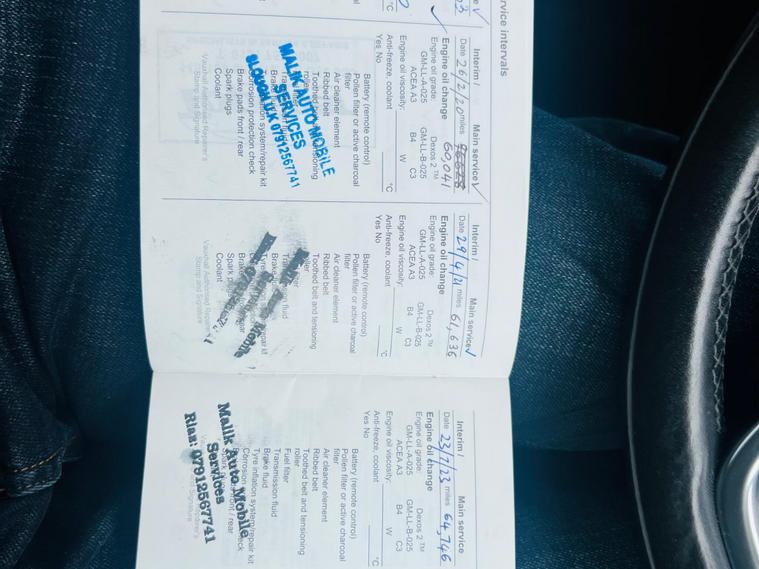 rvice intervals
Interim / Main service ✓
Date 26/2/20 miles 60,041
Engine oil change
Engine oil grade: Dexos 2 ™
GM-LL-A-025 GM-LL-B-025
ACEA A3 B4 C3
Engine oil viscosity: W
Anti-freeze, coolant °C
Yes No
Battery (remote control)
Pollen filter or active charcoal
filter
Air cleaner element
Ribbed belt
Toothed belt and tensioning
roller
Corrosion protection check
Brake pads front / rear
Spark plugs
Coolant
Vauxhall Authorised Repairer's
Stamp and Signature
MALIK AUTO MOBILE
SERVICES
SLOUGH U.K 07912567741
Interim / Main service ✓
Date 29/4/21 miles 61,636
Engine oil change
Engine oil grade: Dexos 2 ™
GM-LL-A-025 GM-LL-B-025
ACEA A3 B4 C3
Engine oil viscosity: W
Anti-freeze, coolant °C
Yes No
Battery (remote control)
Pollen filter or active charcoal
filter
Air cleaner element
Ribbed belt
Toothed belt and tensioning
roller
Coolant
Vauxhall Authorised Repairer's
Stamp and Signature
Interim / Main service
Date 23/7/23 miles 64,746
Engine oil change
Engine oil grade: Dexos 2 ™
GM-LL-A-025 GM-LL-B-025
ACEA A3 B4 C3
Engine oil viscosity: W
Anti-freeze, coolant °C
Yes No
Battery (remote control)
Pollen filter or active charcoal
filter
Air cleaner element
Ribbed belt
Toothed belt and tensioning
roller
Fuel filter
Transmission fluid
Brake fluid
Tyre inflation system/repair kit
Malik Auto Mobile
Services
Rias: 07912567741